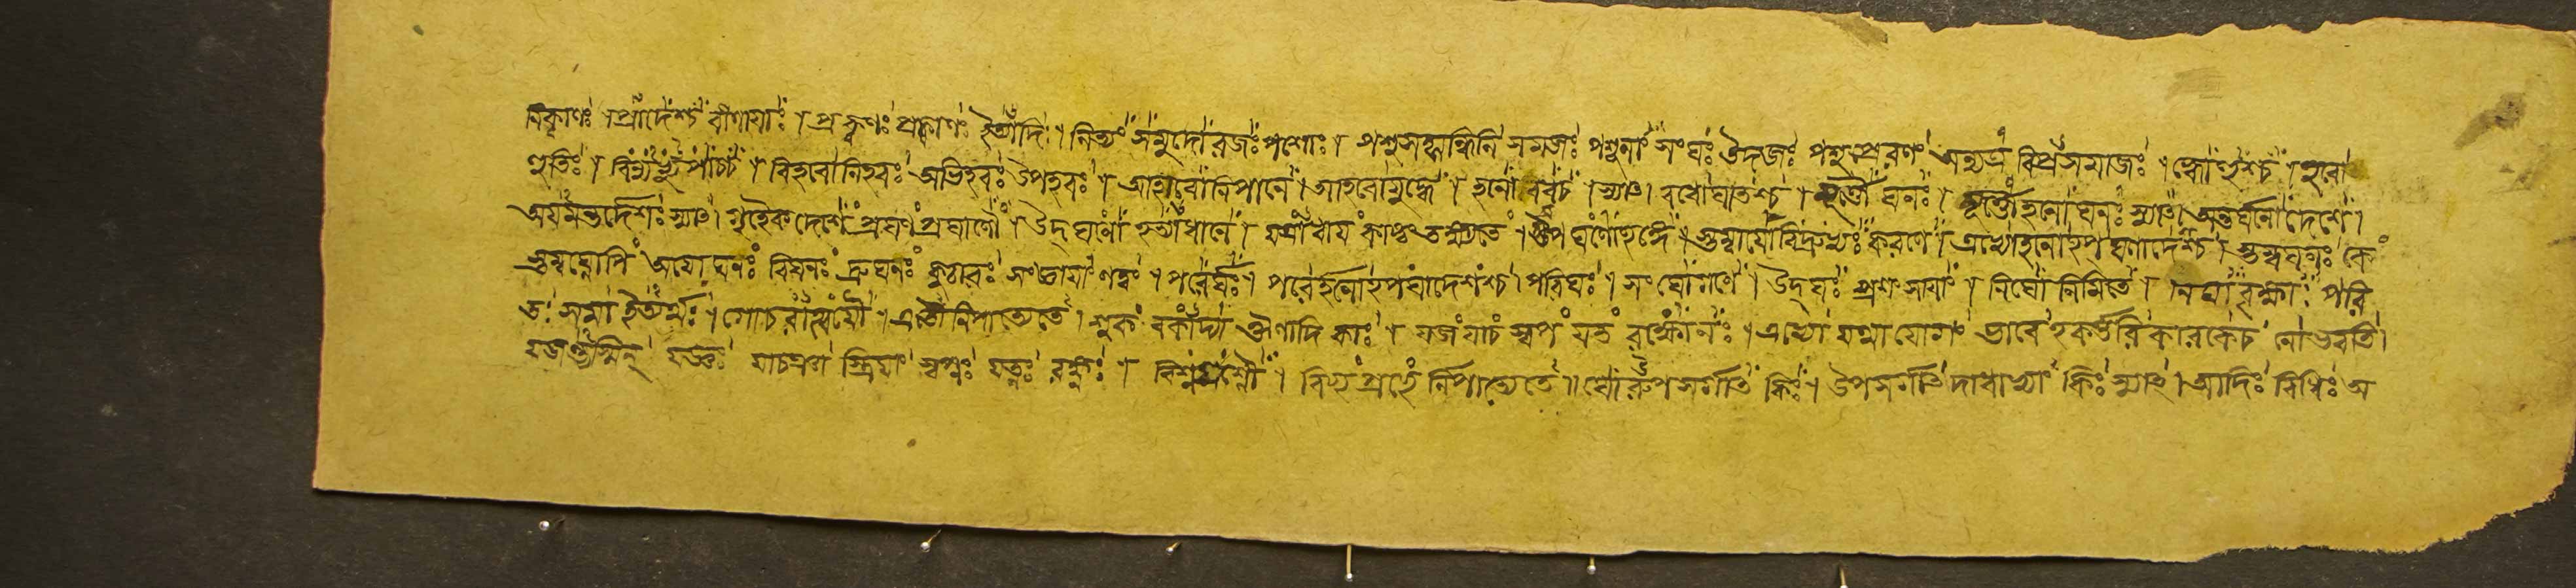 নিক্বাণঃ । প্রাদেশ্চ বীণায়াং । প্রক্বণঃ প্রক্বাণঃ ইত্যাদি । নিত্যং সমুদোরজঃ পশোঃ । পশুসমূহস্মিনি সমজঃ পশুনাং সংঘঃ উদজঃ পশুপ্রেরণং অন্যত্র বিপ্রসমাজঃ । হ্বোণুশ্চ । হ্ববা
ণুতিঃ । বিন্যভ্যুপাচ্চ । বিহবো নিহবঃ অভিহবঃ উপহবঃ । আহাবো নিপানে । আহবো যুদ্ধে । হনো বধচ । স্যাৎ । বধো ঘাতশ্চ । মূর্ত্তৌ ঘনঃ । মূর্ত্তৌ হনো ঘনঃ স্যাৎ । অন্তর্ঘনো দেশে ।
অয়মন্তর্দেশঃ স্যাৎ । গৃহৈকদেশে প্রঘণ প্রঘাণৌ । উদ্ঘনো হত্যাধানে । যস্যোপায় কাষ্ঠং তক্ষ্যতে । অপঘণোহঙ্গে । স্তম্বাযোবিদ্রুভ্যঃ করণে । এভ্যোহনোহপঘণাদেশ্চ । স্তম্বঘনঃ কে
স্তম্বঘ্নোপি অয়োঘনঃ বিঘনঃ দ্রুঘনঃ কুঠারঃ সংজ্ঞায়াং ণত্বং । পরের্ঘঃ । পরের্হনোহপঘাদেশশ্চ । পরিঘঃ । সংঘো গণে । উদ্ঘঃ প্রশংসায়াং । নিঘো নিমিতে । নিঘা বৃক্ষাঃ পরি
তঃ সমা ইত্যর্থঃ । গোচরাদ্যর্থৌ । এতৌ নিপাত্যেতে । শূকং বর্কাদ্যা ঔণাদি কাঃ । যজ যাচ স্বপ যত রক্ষো নঃ । এভ্যো যথা যোগং ভাবেহকর্ত্তরি কারকেচ নো ভবতি ।
যজন্ত্যস্মিন্ যজ্ঞঃ যাচঞা স্ত্রিয়াং স্বপ্নঃ যত্নঃ রক্ষ্ণঃ । বিশ্নপ্রশ্নৌ । বিচ্ছ প্রচ্ছে র্নিপাত্যেতে ॥ ঘোরুপসর্গাতি কিঃ । উপসর্গাৎ দাধাভ্যাং কিঃ স্যাৎ । আদিঃ বিধিঃ অ